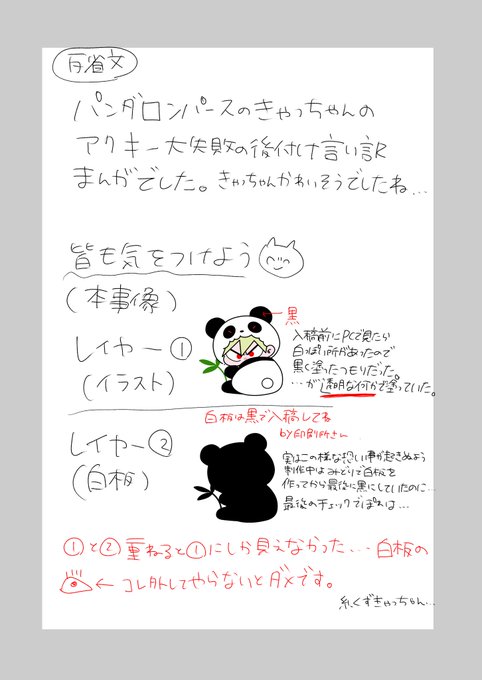 反省文
パンダロンパースのきゃっちゃんの
アクキー大失敗の後付け言い訳
まんがでした。きゃっちゃんかわいそうでしたね…
皆も気をつけよう
(本事像)
←黒
レイヤー①
(イラスト)
入稿前にPCで見たら
白っぽい所があったので
黒く塗ったつもりだった。
…が透明な何かで塗っていた。
白板は黒で入稿してね
by印刷所さん
レイヤー②
(白板)
実はこの様な恐い事が起きぬよう
制作中はみどりで白板を
作ってから最後に黒にしていたのに…
最後のチェックでぽれは…
①と②重ねると①にしか見えなかった…白板の
← コレ外してやらないとダメです。
紙くずきゃっちゃん…